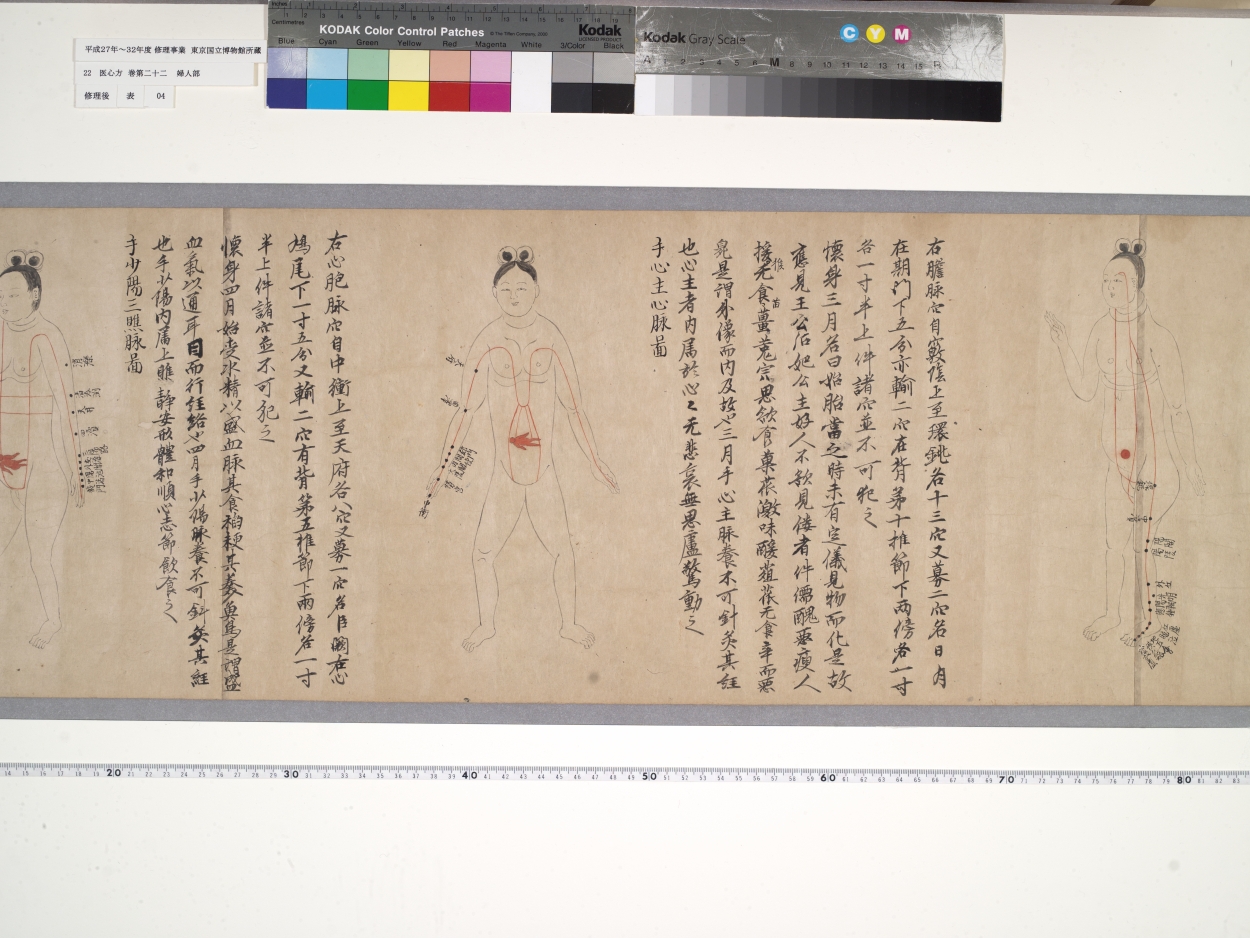 平成27年～32年度 修理事業 東京国立博物館所蔵
22 医心方 巻第二十二 婦人部
修理後 表 04
Inches
Centimetres
KODAK Color Control Patches
© The Tiffen Company, 2000
Kodak
LICENSED PRODUCT
Blue Cyan Green Yellow Red Magenta White 3/Color Black
Kodak Gray Scale
C Y M
A 1 2 3 4 5 6 M 8 9 10 11 12 13 14 15 B
右膽脉穴自竅陰上至環銚各十三穴又募二穴名日月
在期門下五分亦輸二穴在背第十椎節下兩傍各一寸
各一寸半上件諸穴並不可犯之
懷身三月名曰始胎當之時未有定儀見物而化是故
應見王公后妃公主好人不欲見僂者件儒醜惡瘦人
猿
苗
无食薑菟宍思欲食菓蓏激味酸葅蓏无食辛而惡
臰是謂外像而内及故也三月手心主脉養不可針灸其經
也心主者内属於心心无悲哀無思慮驚動之
手心主心脉啚
右心胞脉穴自中衝上至天府各八穴又募一穴名巨闕在心
鳩尾下一寸五分又輸二穴有背第五椎節下兩傍各一寸
半上件諸穴並不可犯之
懷身四月始受水精以盛血脉其食稻粳其羹魚鳥是謂盛
血氣以通耳目而行經絡也四月手少陽脉養不可針灸其經
也手少陽内属上膲靜安形體和順心志節飲食之
手少陽三膲脉啚
20 30 40 50 60 70 80